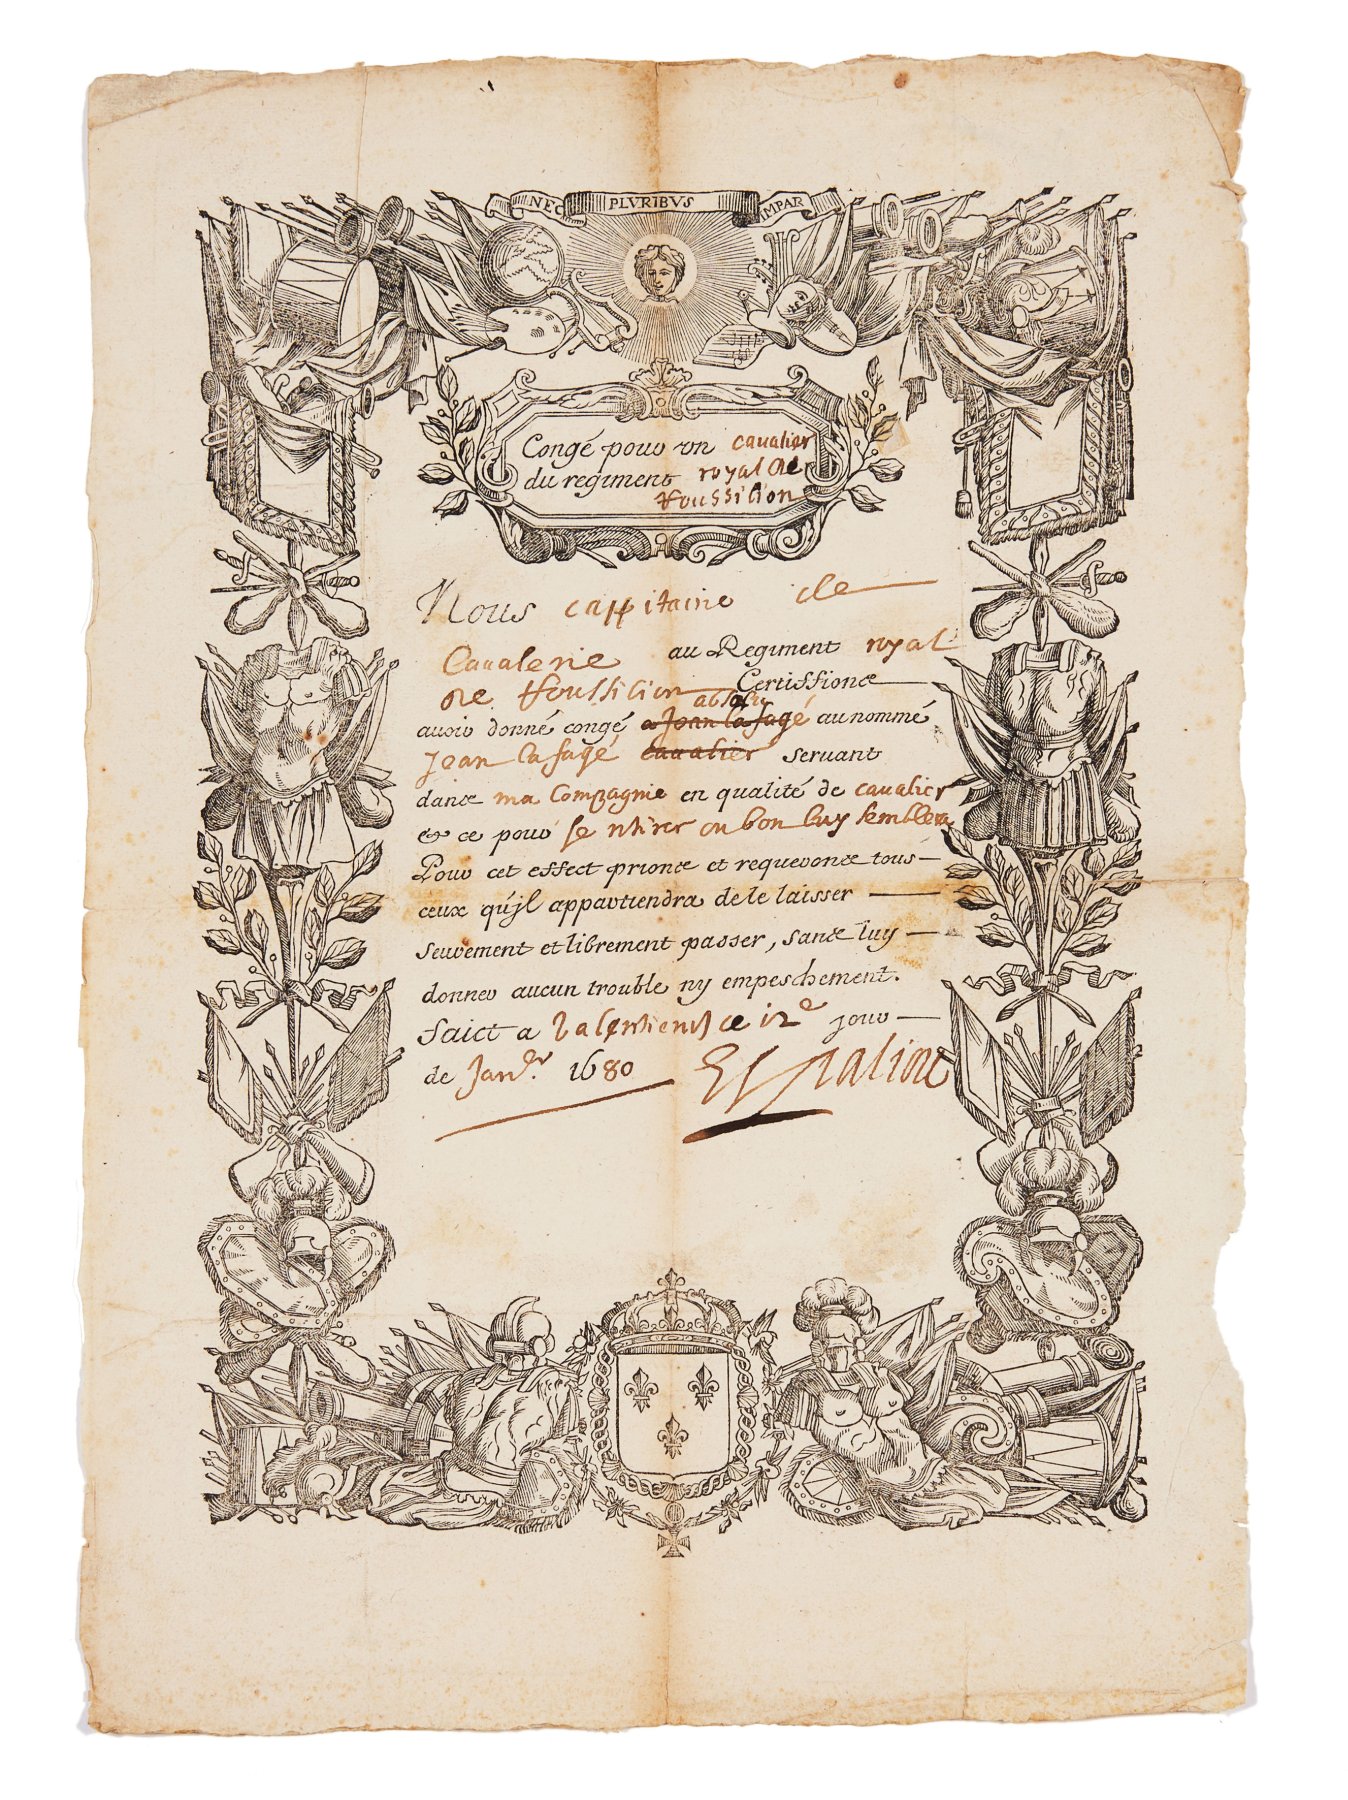 NEC PLVRIBVS IMPAR
Congé pour vn caualier
du regiment royal de
Roussilion
Nous cappitaine de
Caualerie au Regiment royal
de Roussilion Certiffions
absolu
auoir donné congé a Jean la fagé au nommé
Jean la fagé caualier seruant
dans ma Compagnie en qualité de caualier
& ce pour se retirer ou bon luy semblera
Pour cet effect prions et requerons tous
ceux qu'jl appartiendra de le laisser
seurement et librement passer, sans luy
donner aucun trouble ny empeschement.
Faict a Valentienes ce 12e jour
de Janer. 1680